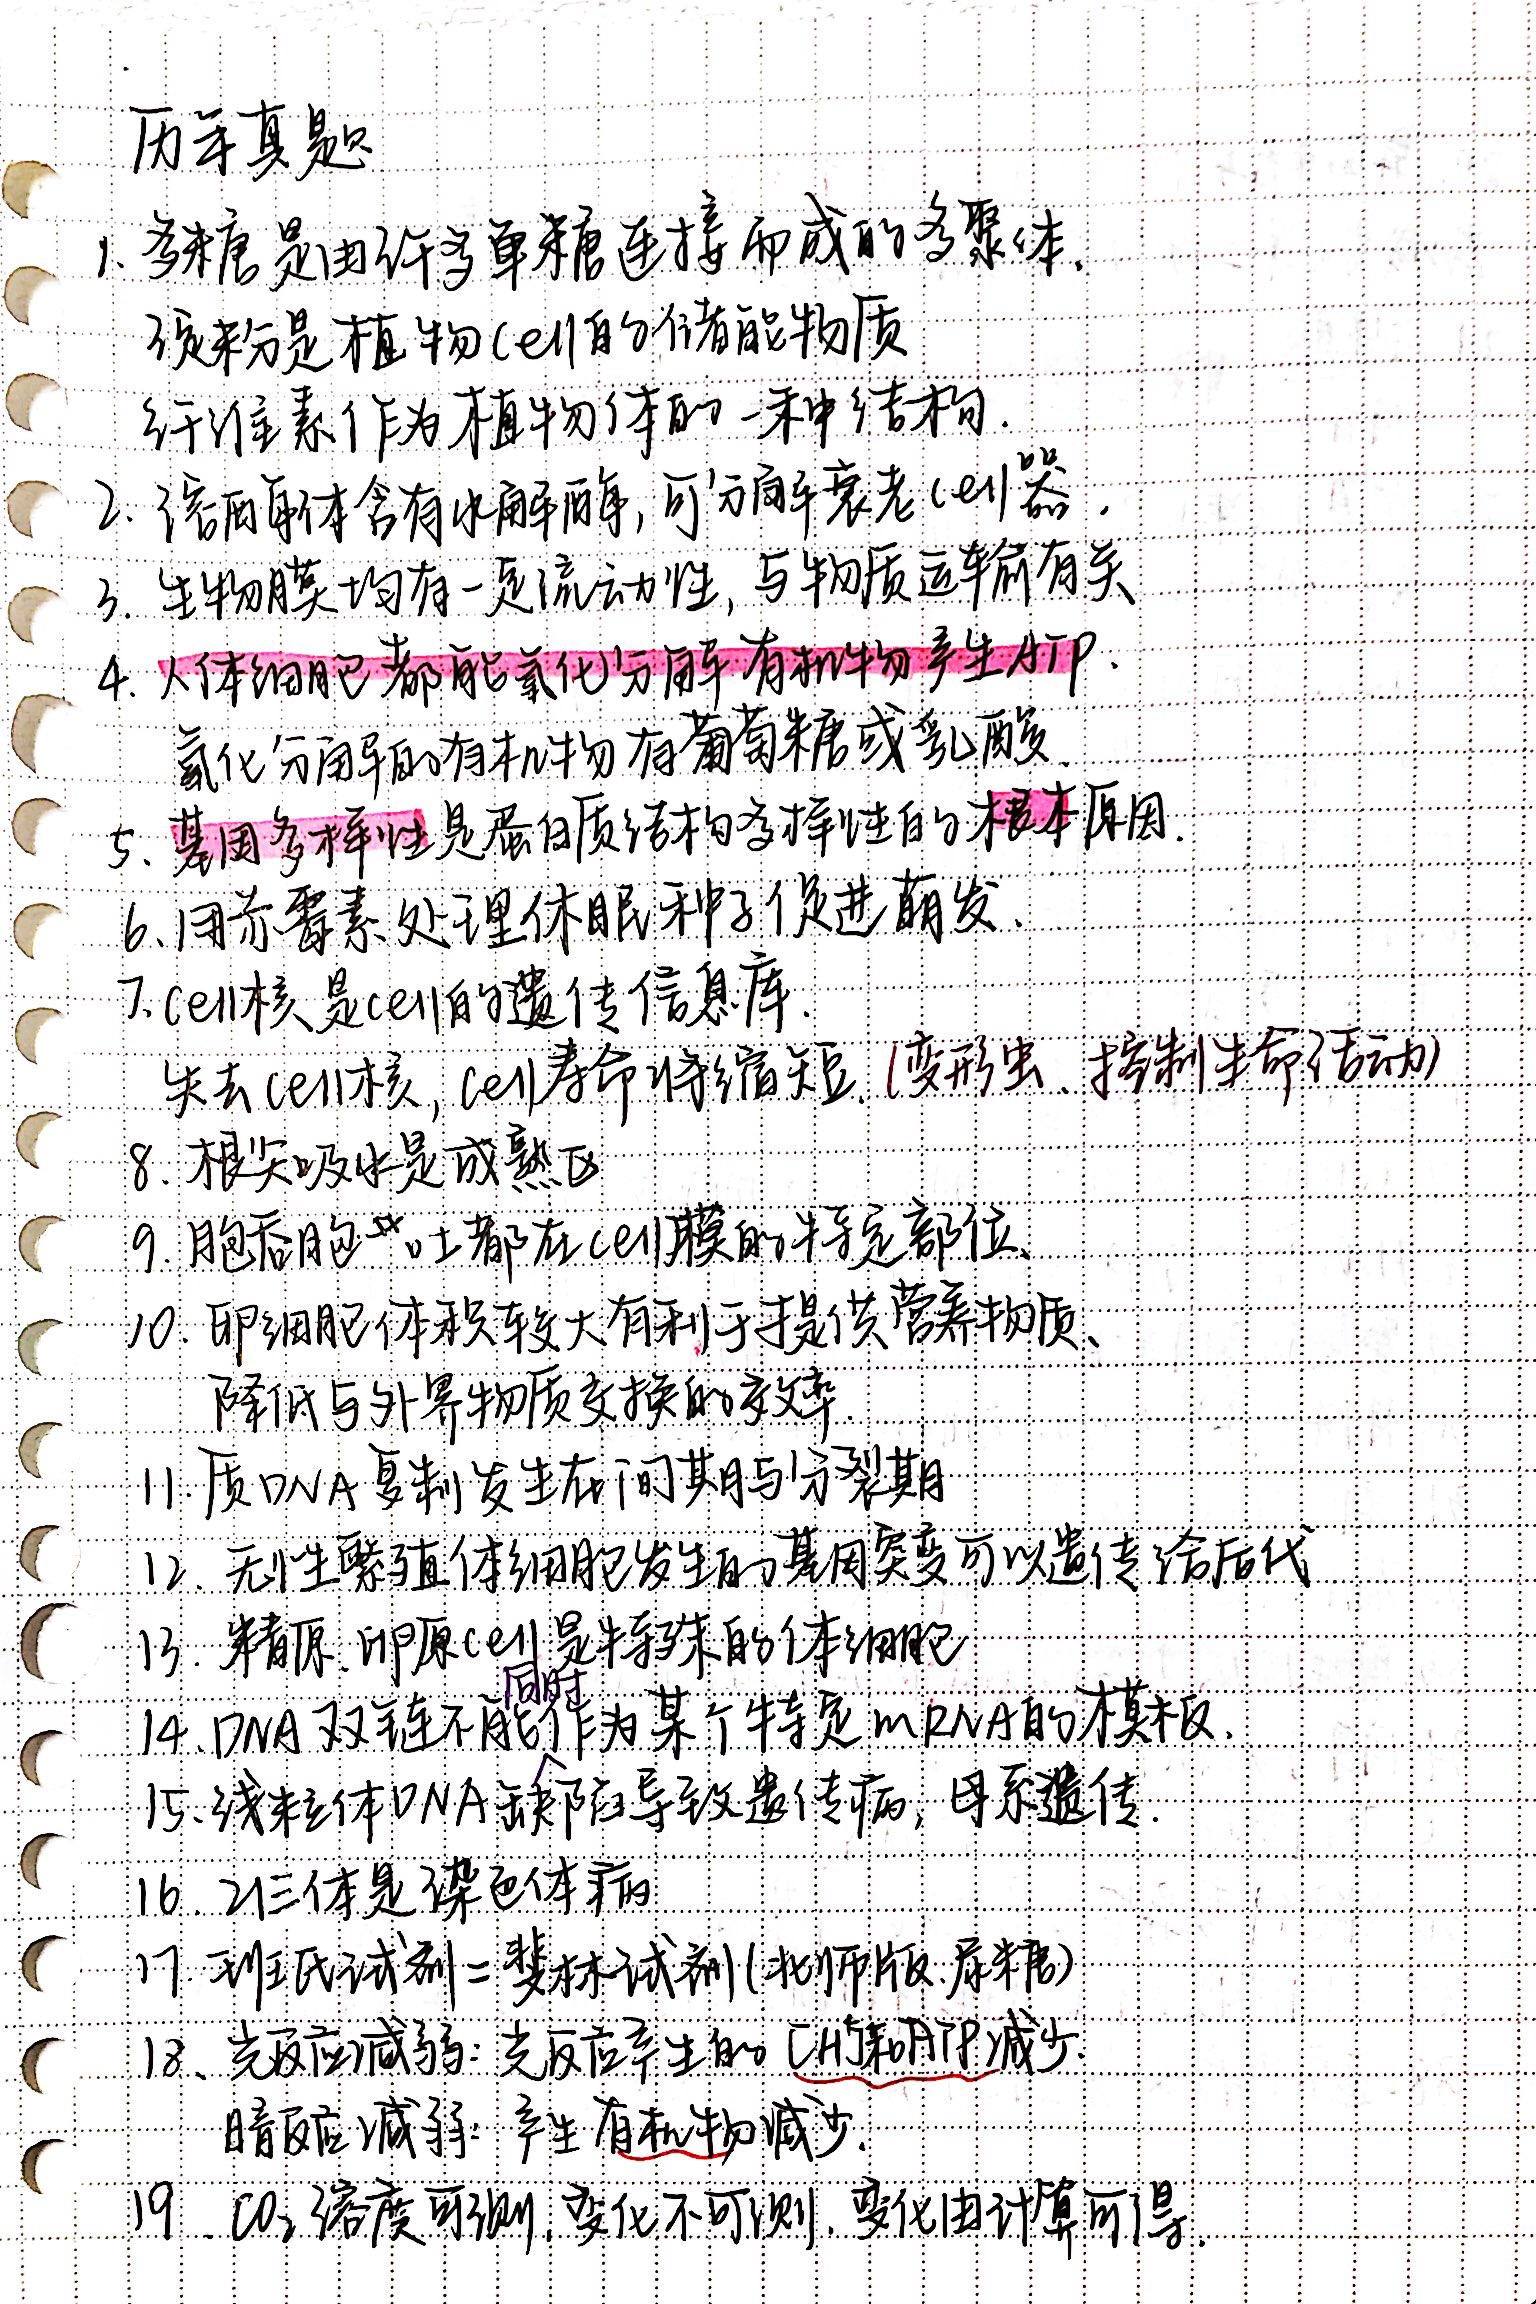 历年真题
1. 多糖是由许多单糖连接而成的多聚体.
淀粉是植物cell的储能物质
纤维素作为植物体的一种结构.
2. 溶酶体含有水解酶, 可分解衰老cell器.
3. 生物膜均有一定流动性, 与物质运输有关
4. 人体细胞都能氧化分解有机物产生ATP.
氧化分解的有机物有葡萄糖或乳酸.
5. 基因多样性是蛋白质结构多样性的根本原因.
6. 用赤霉素处理休眠种子促进萌发.
7. cell核是cell的遗传信息库.
失去cell核, cell寿命将缩短. (变形虫、控制生命活动)
8. 根尖吸水是成熟区
9. 胞吞胞吐都在cell膜的特定部位、
10. 卵细胞体积较大有利于提供营养物质、
降低与外界物质交换的效率.
11. 质DNA复制发生在间期与分裂期
12. 无性繁殖体细胞发生的基因突变可以遗传给后代
13. 精原.卵原cell是特殊的体细胞
14. DNA双链不能同时作为某个特定mRNA的模板.
15. 线粒体DNA缺陷导致遗传病, 母系遗传.
16. 21三体是染色体病
17. 班氏试剂=斐林试剂(北师版.尿糖)
18. 光反应减弱: 光反应产生的[H]和ATP减少.
暗反应减弱: 产生有机物减少.
19. CO₂溶度可测, 变化不可测. 变化由计算可得.